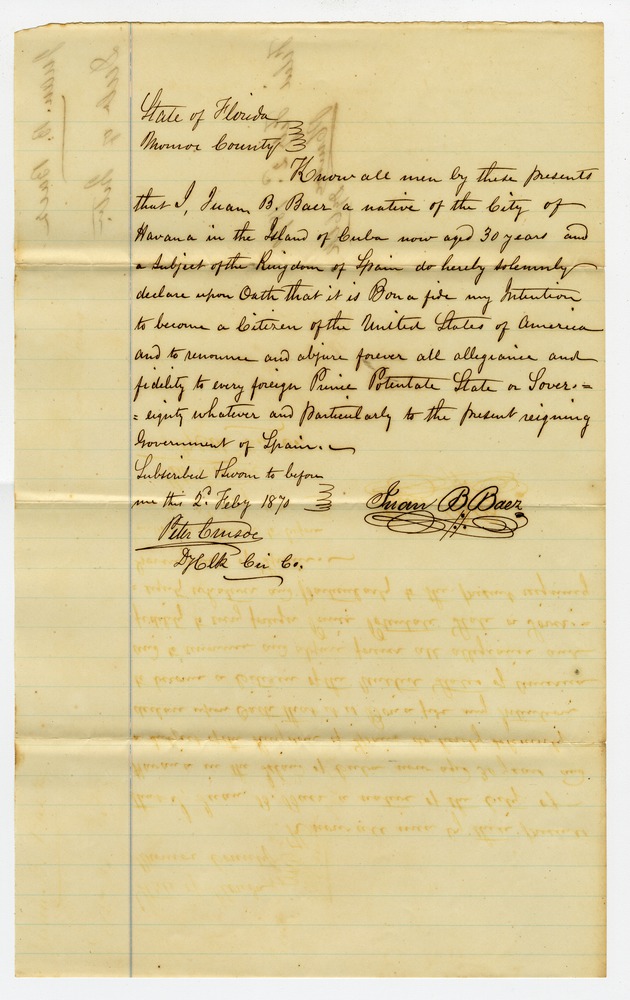 State of Florida
Monroe County
Know all men by these presents
that I, Juan B. Baez a native of the City of
Havana in the Island of Cuba now aged 30 years and
a Subject of the Kingdom of Spain do hereby Solemnly
declare upon Oath that it is Bona fide my Intention
to become a Citizen of the United States of America
and to renounce and abjure forever all allegiance and
fidelity to every foreign Prince Potentate State or Sover=
=eignty whatever and particularly to the present reigning
Government of Spain.
Subscribed & Sworn to before
me this 2d. Feby 1870
Juan B Baez
Peter Crusoe
Dy Clk Cir Co.